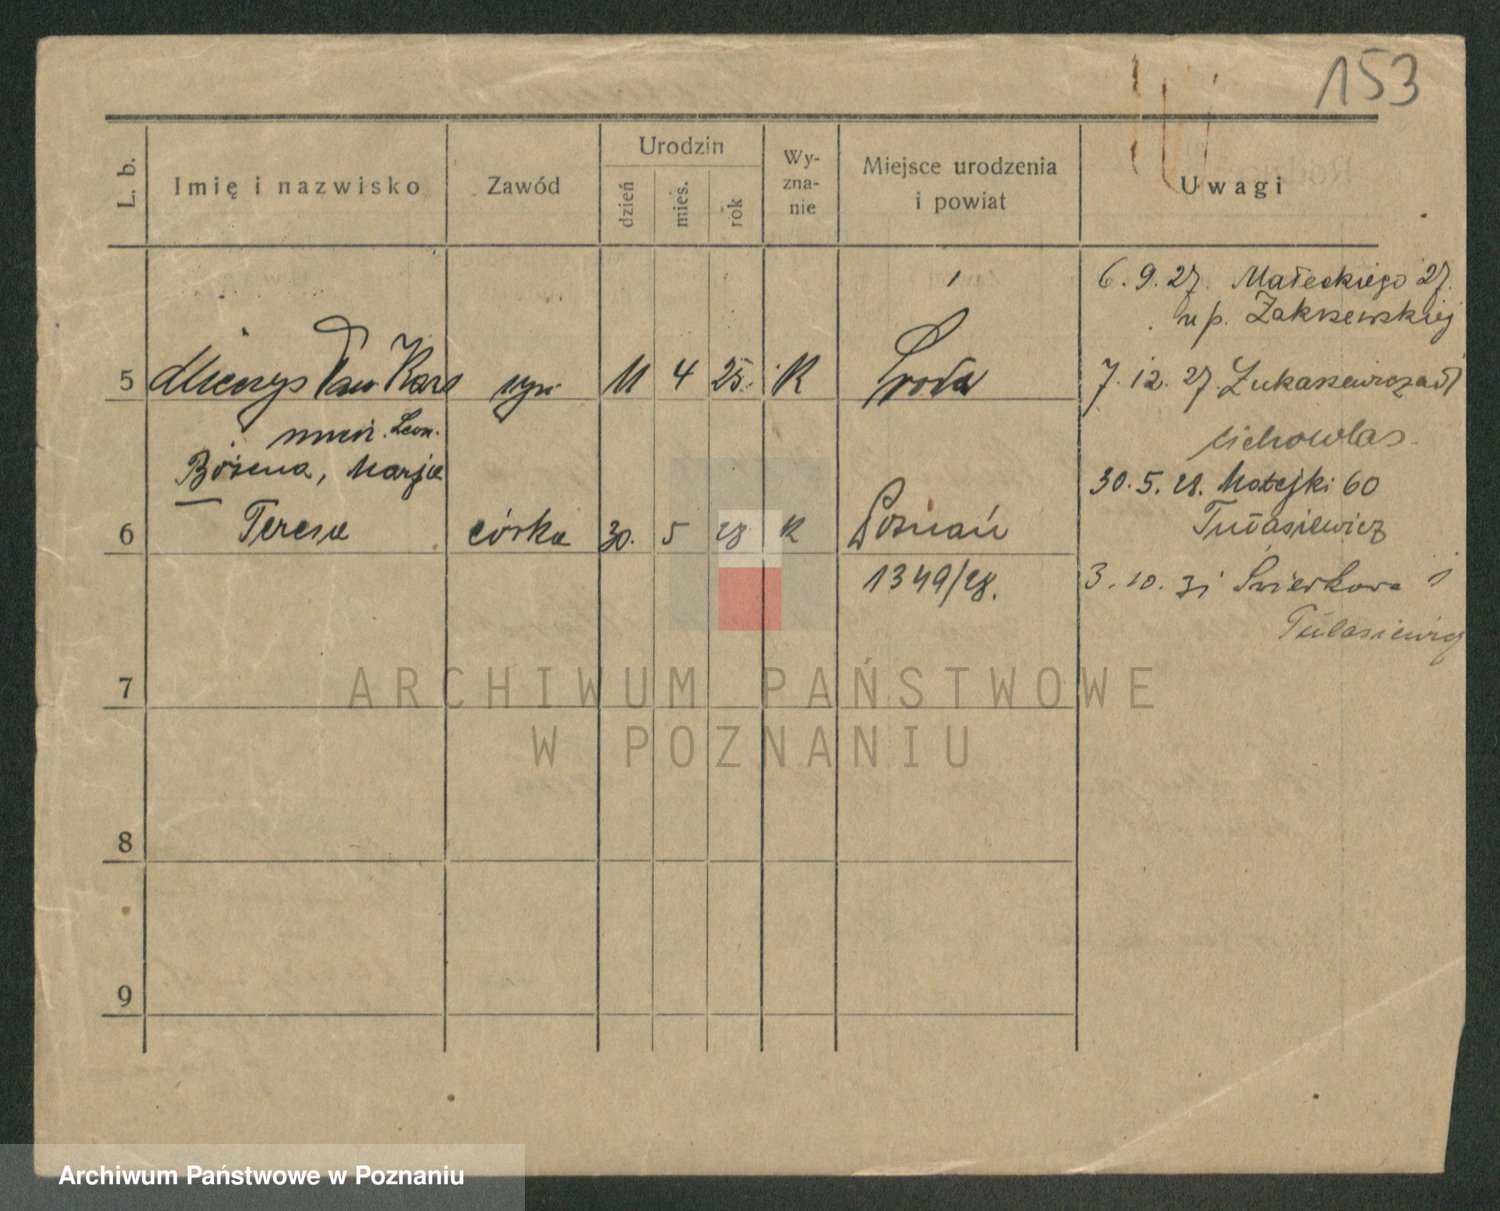 153
L. b.
Imię i nazwisko
Zawód
Urodzin
dzień
mieś.
rok
Wy-
zna-
nie
Miejsce urodzenia
i powiat
Uwagi
6. 9. 27. Małeckiego 27.
u p. Zakrzewskiej
5 syn 11 4 25. K Środa
7. 12. 27. Łukaszewicza
Leon.
Bożena, Marja
30. 5. 28. Matejki 60
6 Teresa córka 30. 5 28 K Poznań
Tułasiewicz
1349/28.
3. 10. 31
Tułasiewicz
7
8
9
ARCHIWUM PAŃSTWOWE
W POZNANIU
Archiwum Państwowe w Poznaniu